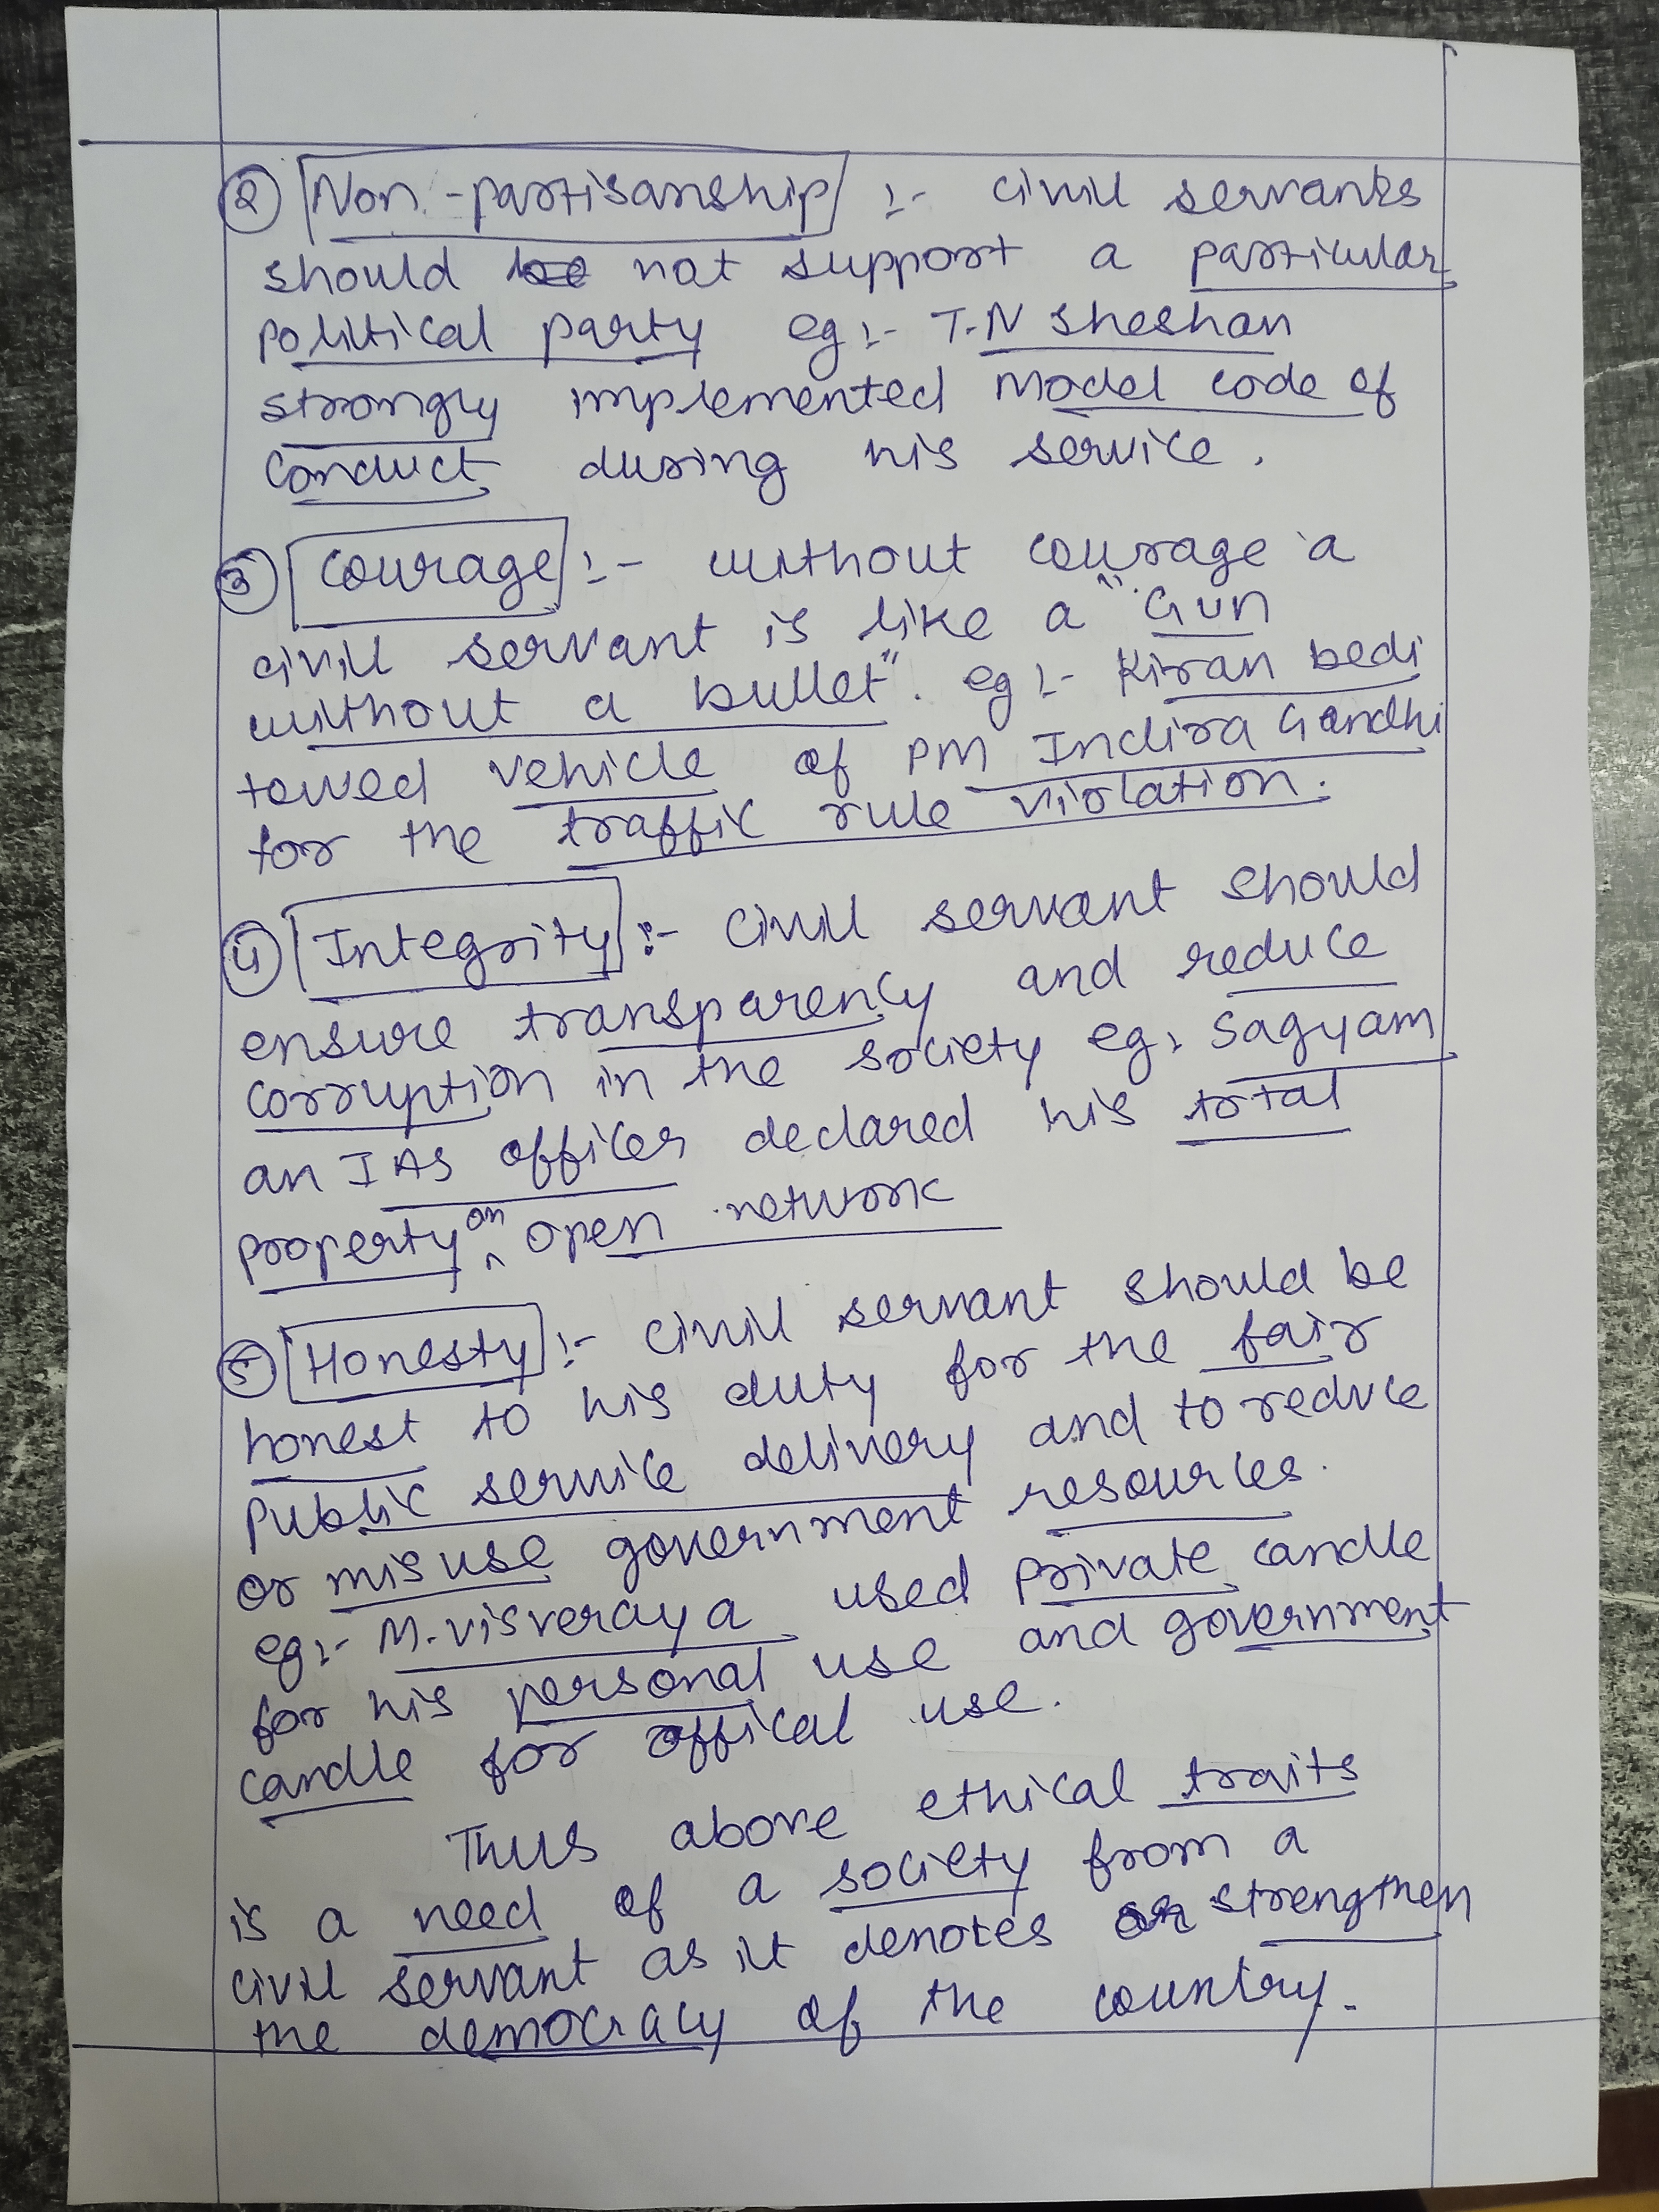 ② Non-partisanship :- civil servants
should not support a particular
political party eg:- T.N Sheshan
strongly implemented Model code of
conduct during his service.
③ Courage :- without courage a
civil servant is like a "Gun
without a bullet". eg:- Kiran bedi
towed vehicle of PM Indira Gandhi
for the traffic rule violation.
④ Integrity :- Civil servant should
ensure transparency and reduce
corruption in the society eg: Sagyam
an IAS officer declared his total
property on open network
⑤ Honesty :- civil servant should be
honest to his duty for the fair
public service delivery and to reduce
or misuse government resources.
eg:- M.visveraya used private candle
for his personal use and government
candle for offical use.
Thus above ethical traits
is a need of a society from a
civil servant as it denotes strengthen
the democracy of the country.